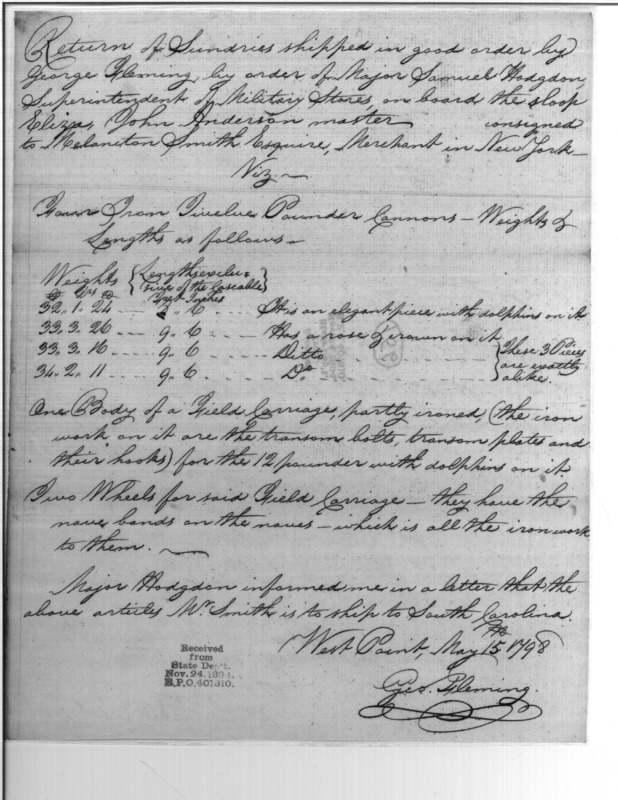 Return of Sundries shipped in good order by
George Fleming, by order of Major Samuel Hodgdon
Superintendent of Military Stores, on board the sloop
Eliza, John Anderson master consigned
to Melancton Smith Esquire, Merchant in New York
Viz
Four Iron Twelve Pounder Cannons – Weights &
Lengths as follows –
Weights { Lengths exclu=
sive of the Cascable }
qrs Feet Inches
32.. 1.. 24 .. 6 It is an elegant piece with dolphins on it
33.. 3.. 26 9.. 6 Has a rose & crown on it
33.. 3.. 16 9.. 6 Ditto } These 3 Pieces
34.. 2.. 11 9.. 6 Do } are exactly
alike.
One Body of a Field Carriage, partly ironed, (the iron
work on it are the transom bolts, transom plates and
their hooks) for the 12 pounder with dolphins on it.
Two Wheels for said Field Carriage – they have the
nave bands on the naves – which is all the iron work
to them.
Major Hodgdon informed me in a letter that the
above articles Mr Smith is to ship to South Carolina.
West Point, May 15 1798
Geo. Fleming.
Received
from
State Dept.
Nov. 24. 1894.
R.P.O. 401310.